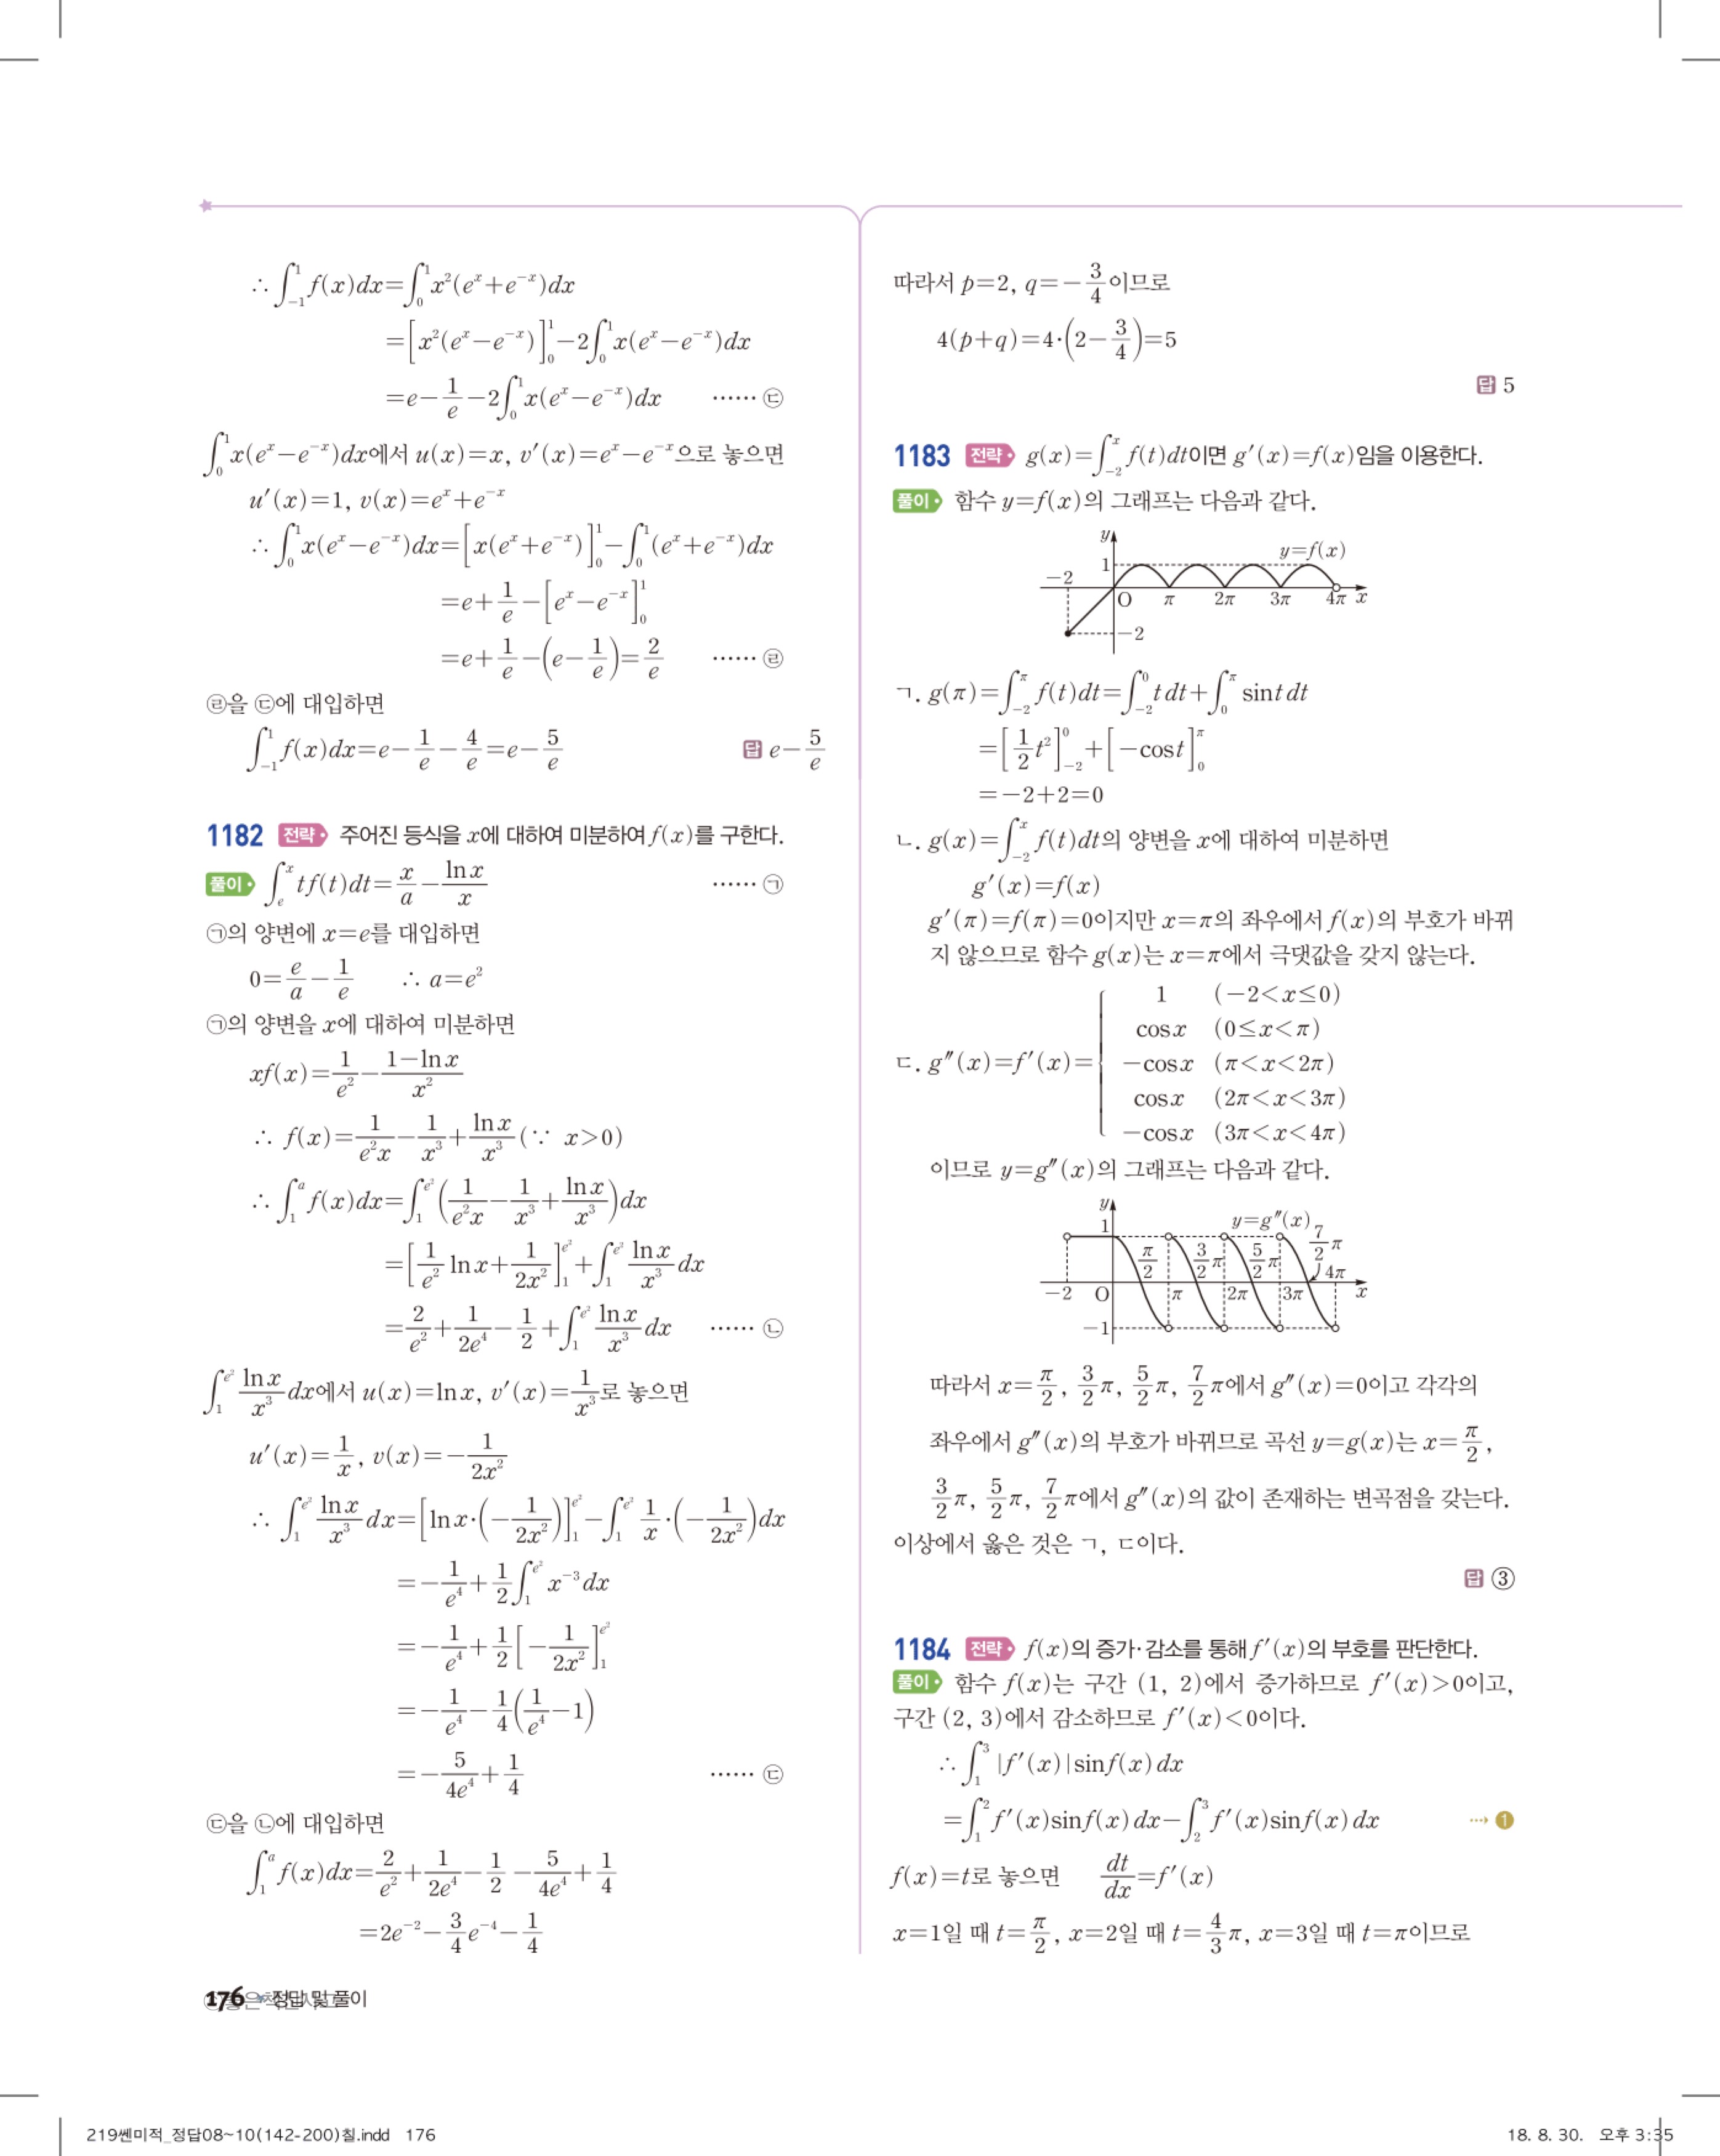 ∴ ∫_{-1}^{1} f(x)dx=∫_{0}^{1} x²(e^x+e^{-x})dx
=[x²(e^x-e^{-x})]_{0}^{1}-2∫_{0}^{1} x(e^x-e^{-x})dx
=e-1/e-2∫_{0}^{1} x(e^x-e^{-x})dx ······ ㉢
∫_{0}^{1} x(e^x-e^{-x})dx에서 u(x)=x, v′(x)=e^x-e^{-x}으로 놓으면
u′(x)=1, v(x)=e^x+e^{-x}
∴ ∫_{0}^{1} x(e^x-e^{-x})dx=[x(e^x+e^{-x})]_{0}^{1}-∫_{0}^{1}(e^x+e^{-x})dx
=e+1/e-[e^x-e^{-x}]_{0}^{1}
=e+1/e-(e-1/e)=2/e ······ ㉣
㉣을 ㉢에 대입하면
∫_{-1}^{1} f(x)dx=e-1/e-4/e=e-5/e 답 e-5/e
1182 전략 주어진 등식을 x에 대하여 미분하여 f(x)를 구한다.
풀이 ∫_{e}^{x} tf(t)dt=x/a-lnx/x ······ ㉠
㉠의 양변에 x=e를 대입하면
0=e/a-1/e ∴ a=e²
㉠의 양변을 x에 대하여 미분하면
xf(x)=1/e²-(1-lnx)/x²
∴ f(x)=1/(e²x)-1/x³+lnx/x³ (∵ x>0)
∴ ∫_{1}^{a} f(x)dx=∫_{1}^{e²}(1/(e²x)-1/x³+lnx/x³)dx
=[1/e² lnx+1/(2x²)]_{1}^{e²}+∫_{1}^{e²} lnx/x³ dx
=2/e²+1/(2e⁴)-1/2+∫_{1}^{e²} lnx/x³ dx ······ ㉡
∫_{1}^{e²} lnx/x³ dx에서 u(x)=lnx, v′(x)=1/x³로 놓으면
u′(x)=1/x, v(x)=-1/(2x²)
∴ ∫_{1}^{e²} lnx/x³ dx=[lnx·(-1/(2x²))]_{1}^{e²}-∫_{1}^{e²} 1/x·(-1/(2x²))dx
=-1/e⁴+1/2∫_{1}^{e²} x^{-3}dx
=-1/e⁴+1/2[-1/(2x²)]_{1}^{e²}
=-1/e⁴-1/4(1/e⁴-1)
=-5/(4e⁴)+1/4 ······ ㉢
㉢을 ㉡에 대입하면
∫_{1}^{a} f(x)dx=2/e²+1/(2e⁴)-1/2-5/(4e⁴)+1/4
=2e^{-2}-3/4 e^{-4}-1/4
따라서 p=2, q=-3/4이므로
4(p+q)=4·(2-3/4)=5
답 5
1183 전략 g(x)=∫_{-2}^{x} f(t)dt이면 g′(x)=f(x)임을 이용한다.
풀이 함수 y=f(x)의 그래프는 다음과 같다.
y
y=f(x)
1
-2
O π 2π 3π 4π x
-2
ㄱ. g(π)=∫_{-2}^{π} f(t)dt=∫_{-2}^{0} t dt+∫_{0}^{π} sint dt
=[1/2 t²]_{-2}^{0}+[-cost]_{0}^{π}
=-2+2=0
ㄴ. g(x)=∫_{-2}^{x} f(t)dt의 양변을 x에 대하여 미분하면
g′(x)=f(x)
g′(π)=f(π)=0이지만 x=π의 좌우에서 f(x)의 부호가 바뀌
지 않으므로 함수 g(x)는 x=π에서 극댓값을 갖지 않는다.
1 (-2<x≤0)
cosx (0≤x<π)
ㄷ. g″(x)=f′(x)={ -cosx (π<x<2π)
cosx (2π<x<3π)
-cosx (3π<x<4π)
이므로 y=g″(x)의 그래프는 다음과 같다.
y
1 y=g″(x)
π/2 3/2π 5/2π 7/2π
4π
-2 O π 2π 3π x
-1
따라서 x=π/2, 3/2π, 5/2π, 7/2π에서 g″(x)=0이고 각각의
좌우에서 g″(x)의 부호가 바뀌므로 곡선 y=g(x)는 x=π/2,
3/2π, 5/2π, 7/2π에서 g″(x)의 값이 존재하는 변곡점을 갖는다.
이상에서 옳은 것은 ㄱ, ㄷ이다.
답 ③
1184 전략 f(x)의 증가·감소를 통해 f′(x)의 부호를 판단한다.
풀이 함수 f(x)는 구간 (1, 2)에서 증가하므로 f′(x)>0이고,
구간 (2, 3)에서 감소하므로 f′(x)<0이다.
∴ ∫_{1}^{3} |f′(x)|sinf(x)dx
=∫_{1}^{2} f′(x)sinf(x)dx-∫_{2}^{3} f′(x)sinf(x)dx ⋯→ ❶
f(x)=t로 놓으면 dt/dx=f′(x)
x=1일 때 t=π/2, x=2일 때 t=4/3π, x=3일 때 t=π이므로
176 정답 및 풀이
219쎈미적_정답08~10(142-200)칠.indd 176
18. 8. 30. 오후 3:35